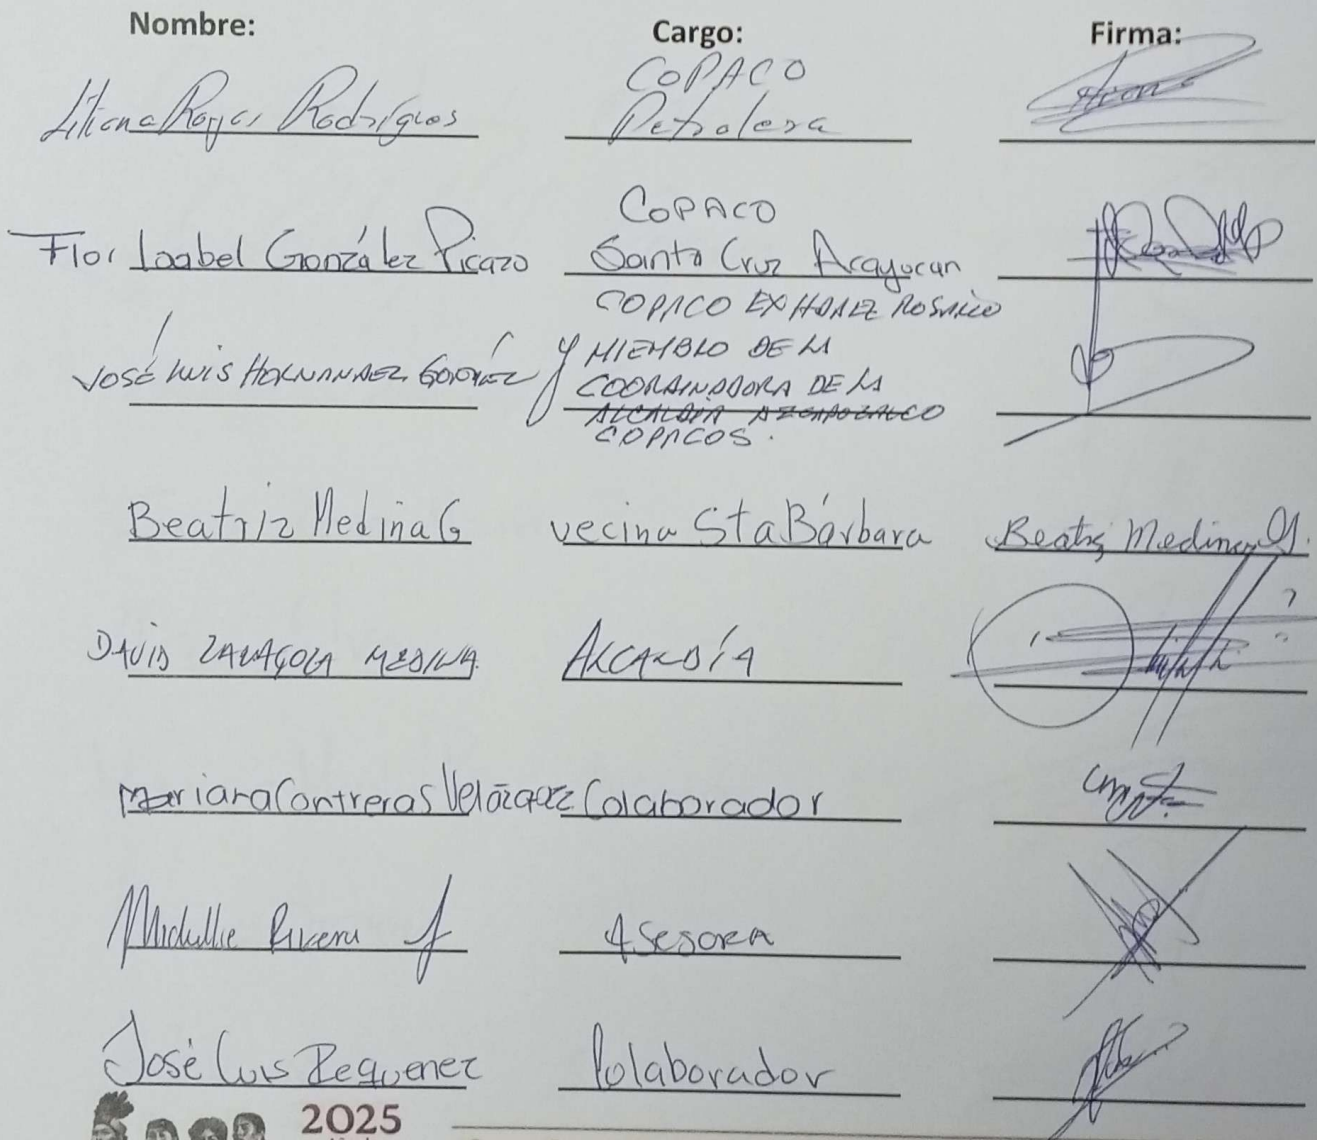 Nombre: Cargo: Firma:
COPACO
Liliana Rojas Rodríguez Petrolera
COPACO
Flor Isabel González Picazo Santa Cruz Acayucan
COPACO EX HDA EZ ROSARIO
JOSÉ LUIS HERNANDEZ Y MIEMBRO DE LA
COORDINADORA DE LA
ALCALDIA AZCAPOZALCO
COPACOS.
Beatriz Medina G vecina Sta Bárbara Beatriz Medina G.
DAVID ZARAGOZA MEDINA ALCALDÍA
Mariana Contreras Velázquez Colaborador
Michellie Rivera J Asesora
José Luis Requenez Colaborador
2025